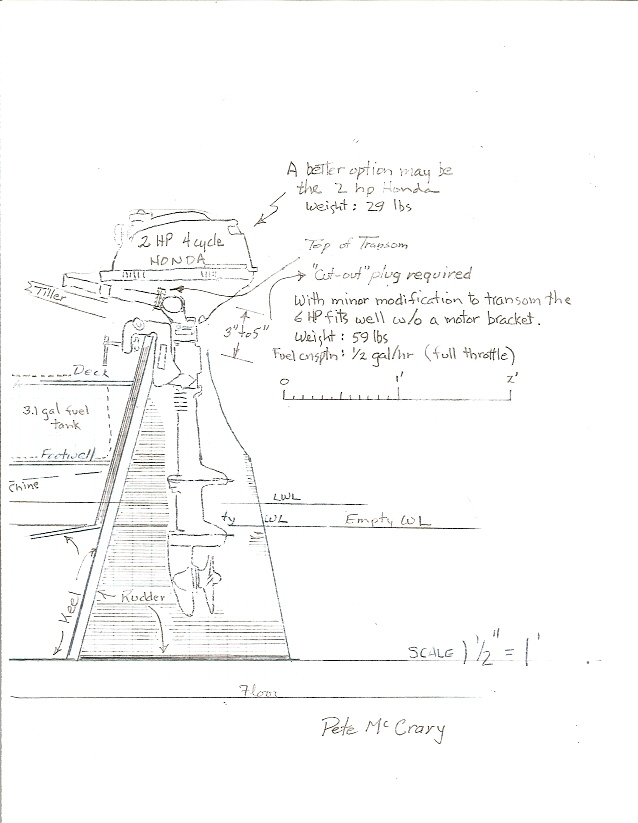 A better option may be
the 2 hp Honda
Weight: 29 lbs
2 HP 4 cycle
HONDA
Top of Transom
"Cut-out" plug required
Tiller
With minor modification to transom the
6 HP fits well w/o a motor bracket.
3" to 5"
Weight: 59 lbs
Fuel cnsptn: 1/2 gal/hr (full throttle)
Deck
0 1' 2'
3.1 gal fuel
tank
Footwell
Chine
LWL
ty WL
Empty WL
Keel
Rudder
SCALE 1 1/2" = 1'
Floor
Pete McCrary